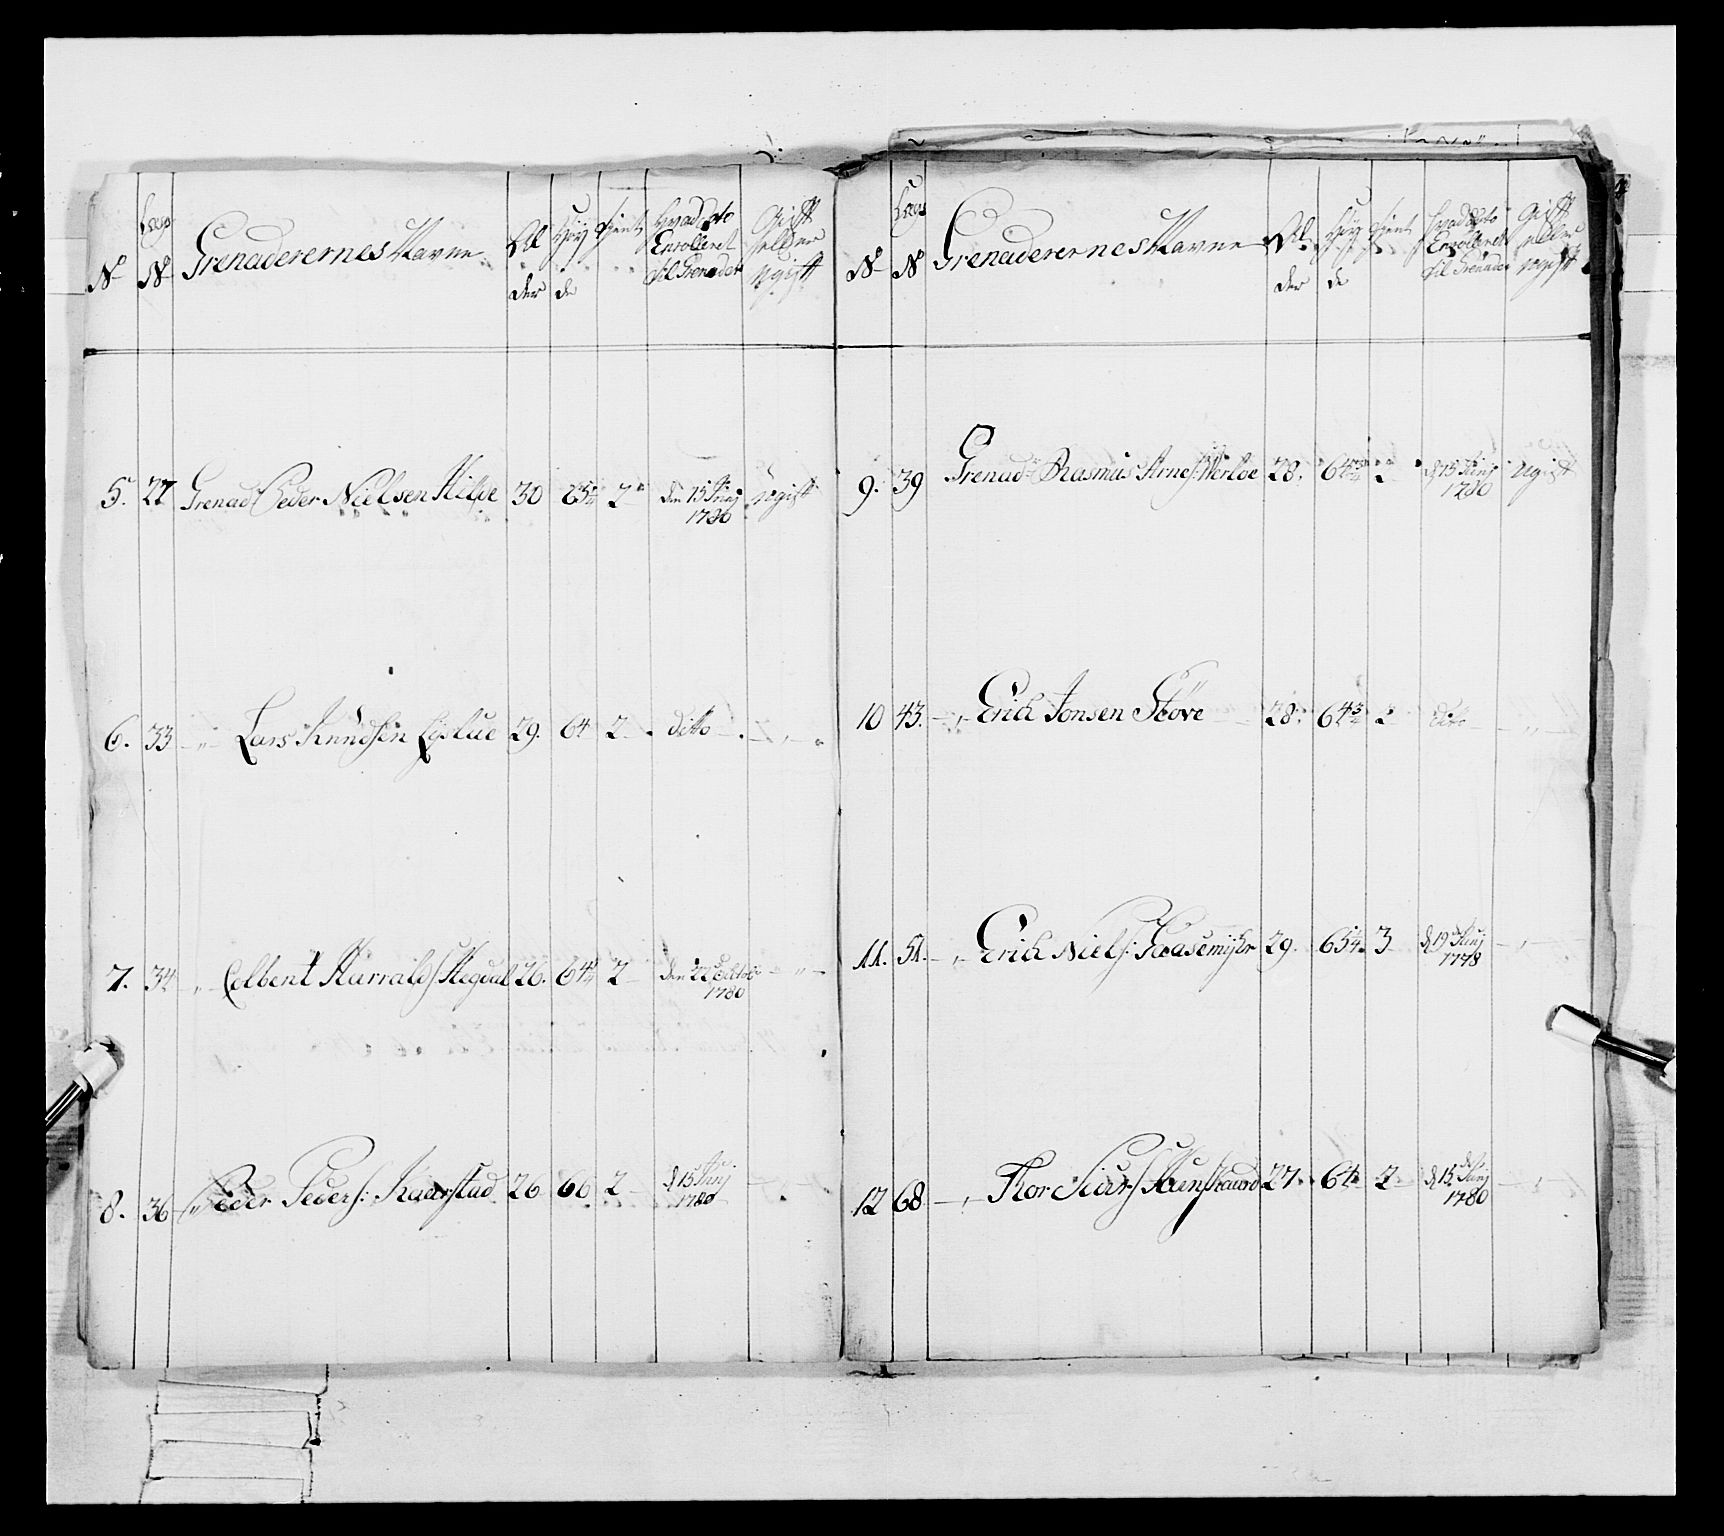 N Lægs N Grenaderernes Navne Al der Høy de Tient Hvad dto Enrolleret til Grenader Gift eller ugift
5. 27 Grenad Peder Nielsen Hilde 30 65 2 den 15 Junj 1780 ugift
6. 33 - " - Lars Knudsen 29. 64 2 - ditto - " -
7. 34 - " Colbent Harralds: 26. 64 2 den 22 Octob: 1780 - " -
8. 36 - " Peder Peders: Kaarstad 26 66 2 - d 15 Junj 1780 - " -
N Lægs N Grenaderernes Navne Al der Høy de Tient Hvad dto Enrolleret til Grenader Gift eller ugift
9. 39 Grenad Rasmus Arnes: 28. 64 2 d 15 Junj 1780 ugift
10 43. - " Erich Jonsen Støve 28. 64 2 dito - " -
11. 51. - " Erich Niels: Haasemyhr 29. 65 3 d 19 Junj 1778 - " -
12 68 - " Thor Siurs: 27. 64 2 d 15 Junj 1780 - "